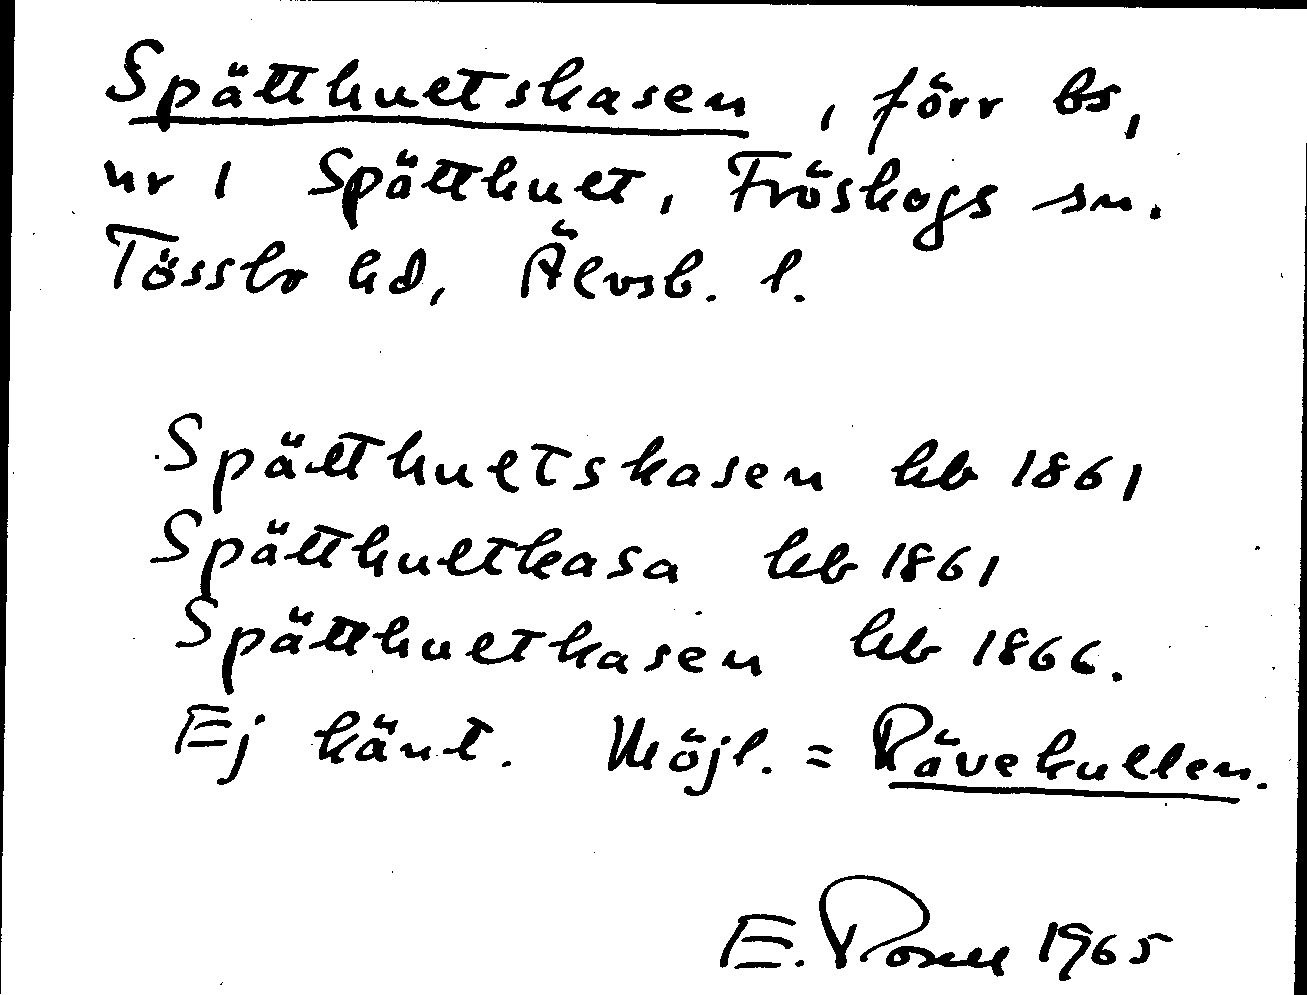 Spätthultskasen, förr bs,
nr 1 Spätthult, Fröskogs sn.
Tössbo hd, Älvsb. l.
Spätthultskasen hb 1861
Spätthultkasa hb 1861
Spätthultkasen hb 1866.
Ej känt. Möjl. = Rävekullen.
E. 1965